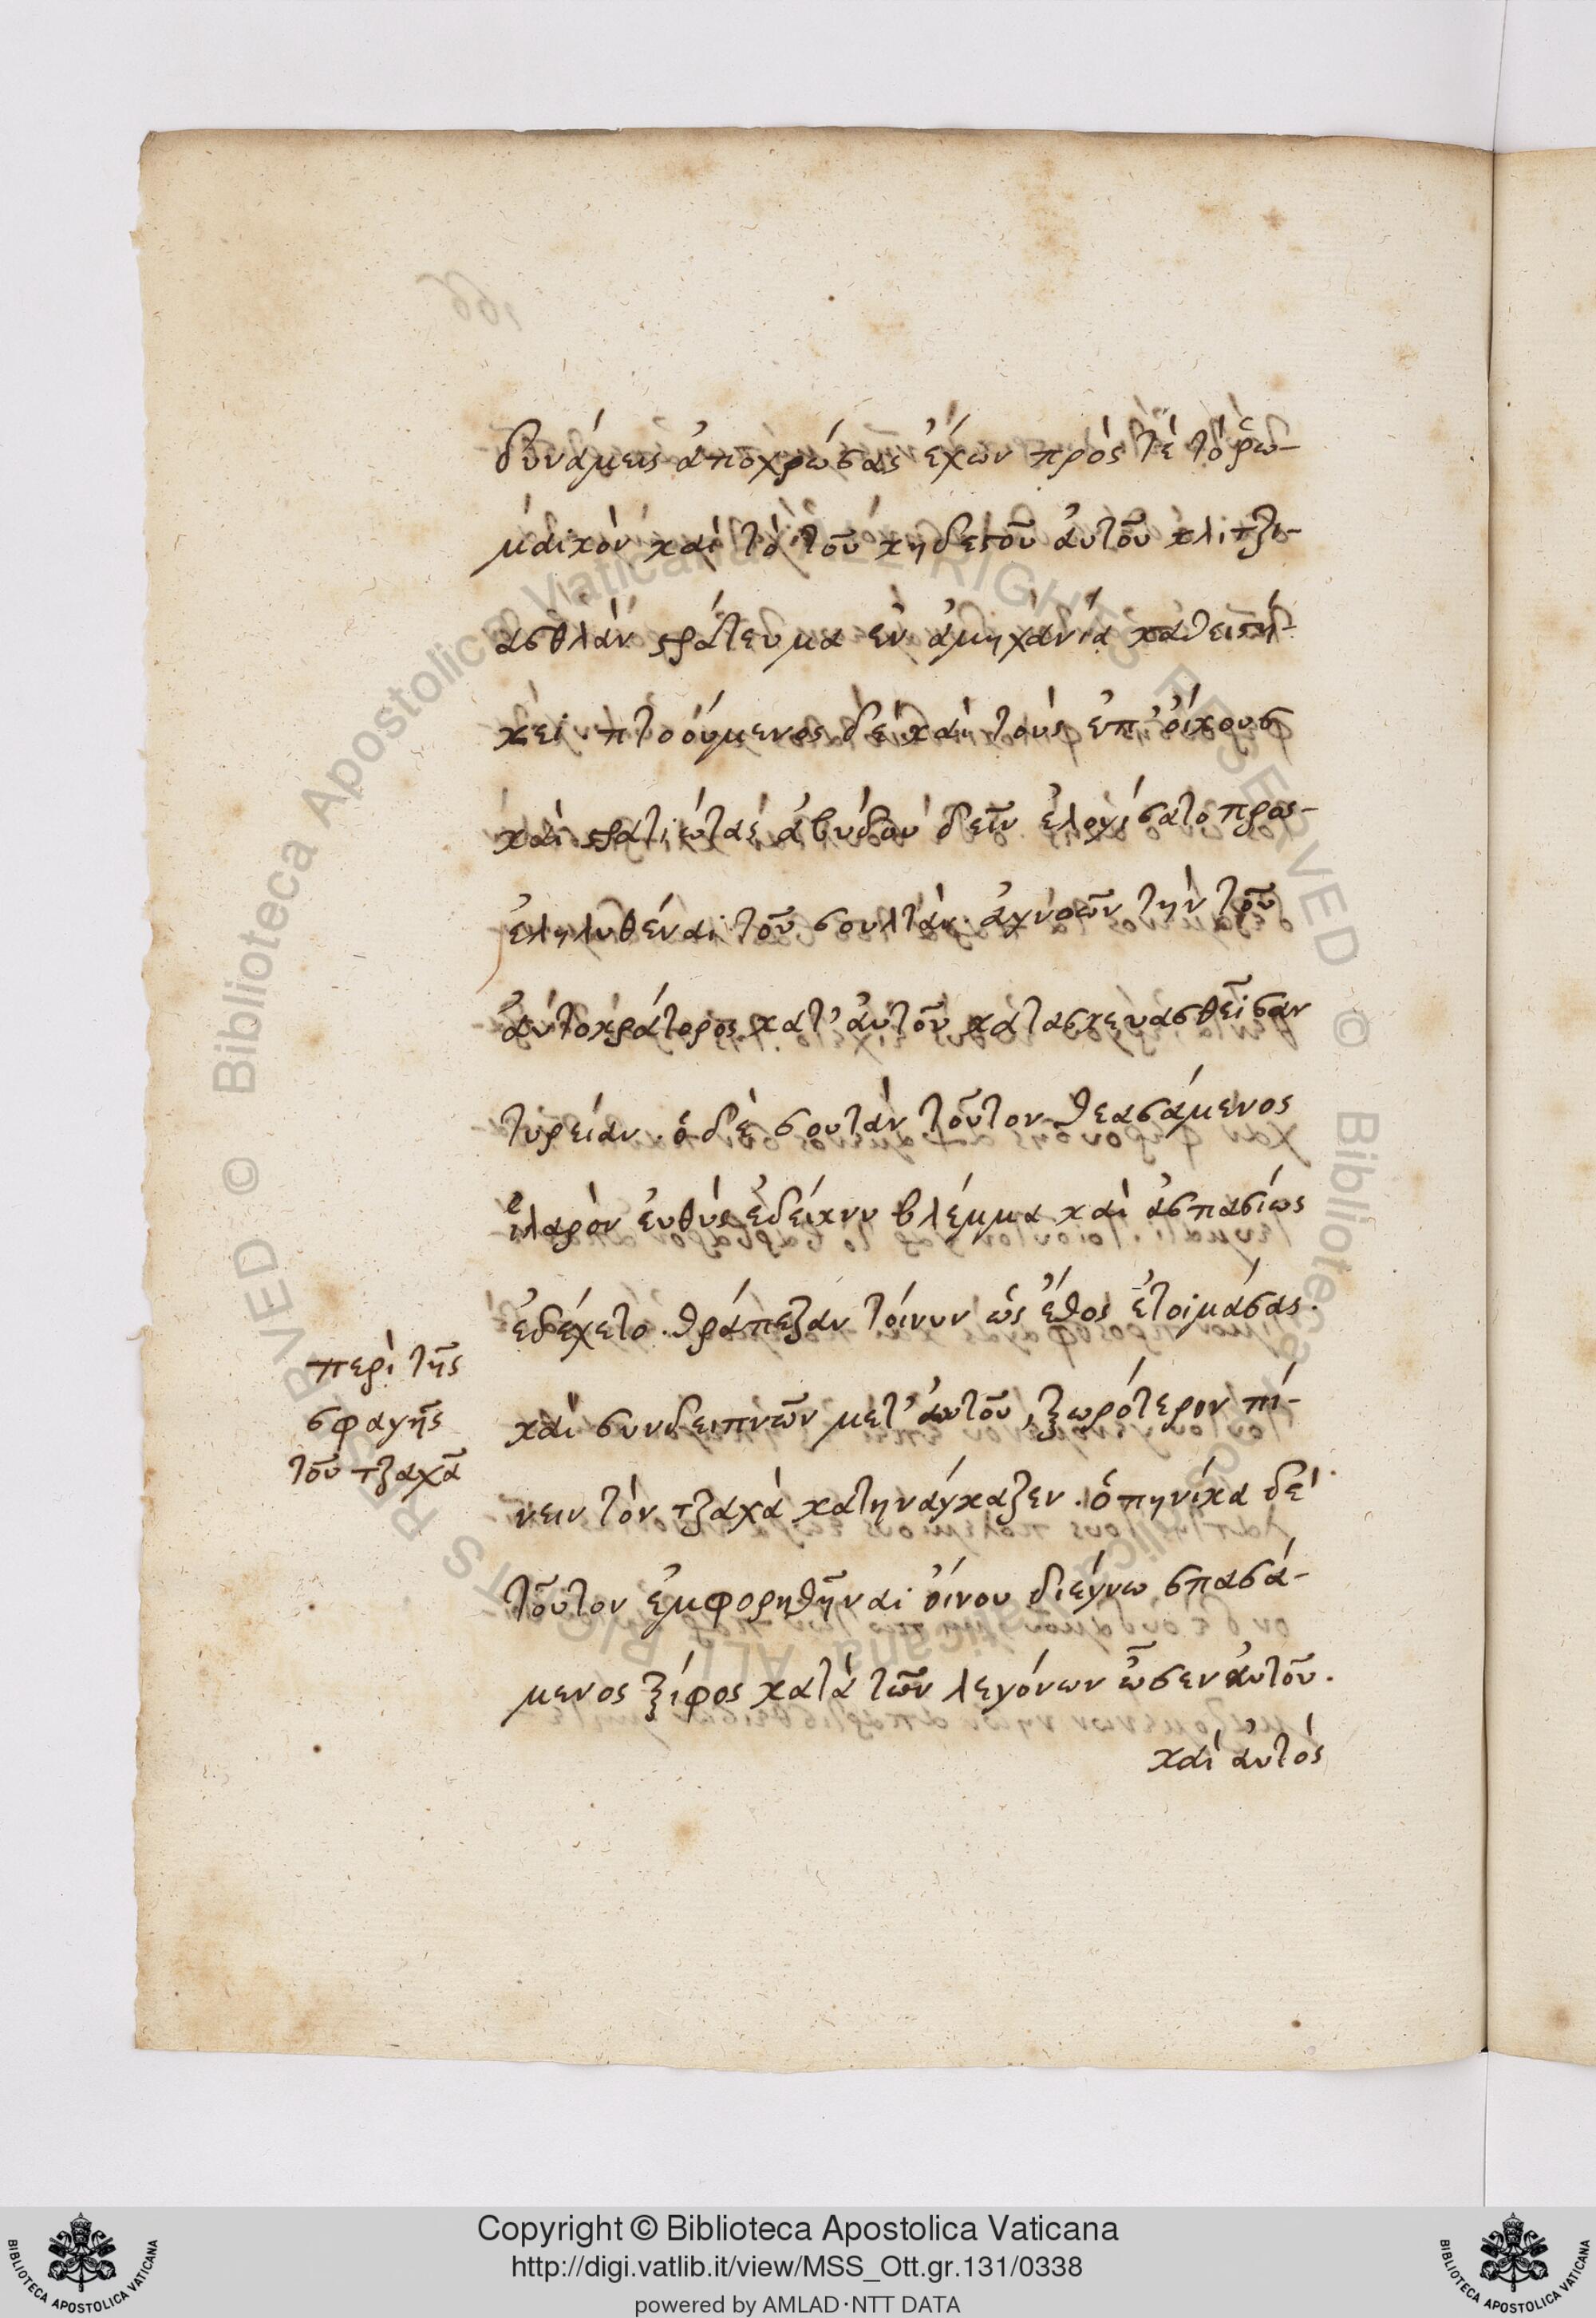 δυνάμεις ἀποχρώσας ἔχων πρὸς τὲ τὸ ῥω-
μαικὸν καὶ τὸ τοῦ κηδεστοῦ ἀυτοῦ κλιτζι-
ασθλὰν στράτευμα ἐν ἀμηχανία καθειστή-
κει. πτοούμενος δὲ καὶ τοὺς ἐπ' ὀίκους
καὶ στρατιώτας ἀβύδου δεῖν ἐλογίσατο προς-
εληλυθέναι τοῦ σουλτὰν. ἀγνοῶν τὴν τοῦ
ἀυτοκράτορος κατ' ἀυτοῦ κατασκευασθεῖσαν
τυρείαν. ὁ δὲ σουτὰν τοῦτον θεασάμενος
ἱλαρὸν ἐυθὺς ἐδείκνυ βλέμμα καὶ ἀσπασίως
ἐδέχετο. θράπεζαν τοίνυν ὡς ἔθος ἑτοιμάσας.
καὶ συνδειπνῶν μετ' ἀυτοῦ, ζωρότερον πί-
νειν τὸν τζαχὰ κατηνάγκαζεν. ὁπηνίκα δὲ
τοῦτον ἐμφορηθῆναι ὀίνου διέγνω, σπασά-
μενος ξίφος κατὰ τῶν λεγόνων ὦσεν ἀυτοῦ.
καὶ ἀυτὸς
περὶ τῆς
σφαγῆς
τοῦ τζαχᾶ
Copyright © Biblioteca Apostolica Vaticana
http://digi.vatlib.it/view/MSS_Ott.gr.131/0338
powered by AMLAD·NTT DATA
BIBLIOTECA APOSTOLICA VATICANA
BIBLIOTECA APOSTOLICA VATICANA